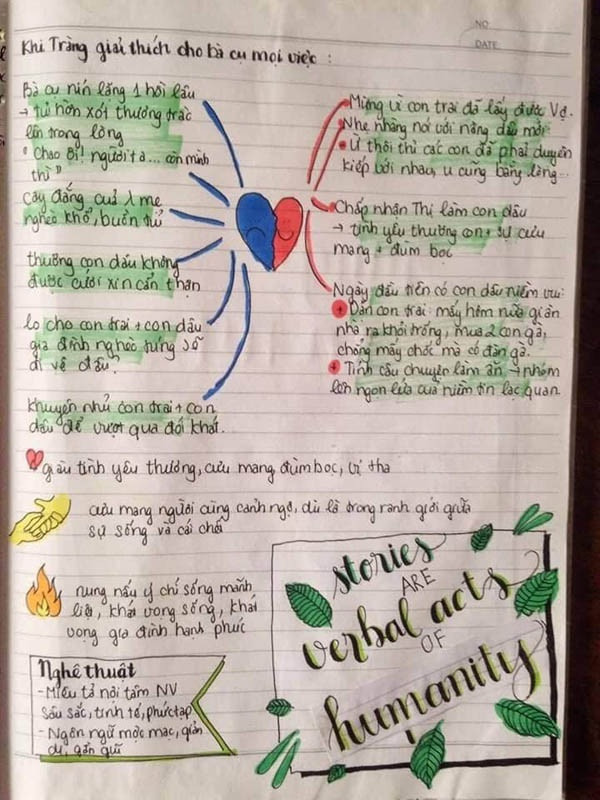 NO
DATE
Khi Tràng giải thích cho bà cụ mọi việc :
Bà cụ nín lặng 1 hồi lâu
→ tủi hờn xót thương trào
lên trong lòng
"Chao ôi! người ta... còn mình
thì"
Cay đắng của 1 mẹ
nghèo khổ, buồn tủi
thương con dâu không
được cưới xin cẩn thận
lo cho con trai + con dâu
gia đình nghèo túng sẽ
đi về đâu?
khuyên nhủ con trai + con
dâu để vượt qua đói khát.
Mừng vì con trai đã lấy được vợ.
Nhẹ nhàng nói với nàng dâu mới:
Ừ thôi thì các con đã phải duyên
kiếp với nhau, u cũng bằng lòng...
Chấp nhận Thị làm con dâu
→ tình yêu thương con + sự cưu
mang + đùm bọc
Ngày đầu tiên có con dâu niềm vui:
+ Dặn con trai: mấy hôm nữa gian
nhà ra khỏi trống, mua 2 con gà,
chẳng mấy chốc mà có đàn gà.
+ Tính câu chuyện làm ăn → nhóm
lên ngọn lửa của niềm tin lạc quan.
giàu tình yêu thương, cưu mang đùm bọc, vị tha
cưu mang người cùng cảnh ngộ, dù là trong ranh giới giữa
sự sống và cái chết
nung nấu ý chí sống mãnh
liệt, khát vọng sống, khát
vọng gia đình hạnh phúc
Nghệ thuật
- Miêu tả nội tâm NV
sâu sắc, tinh tế, phức tạp
- Ngôn ngữ mộc mạc, giản
dị, gần gũi
stories
ARE
verbal acts
OF
humanity